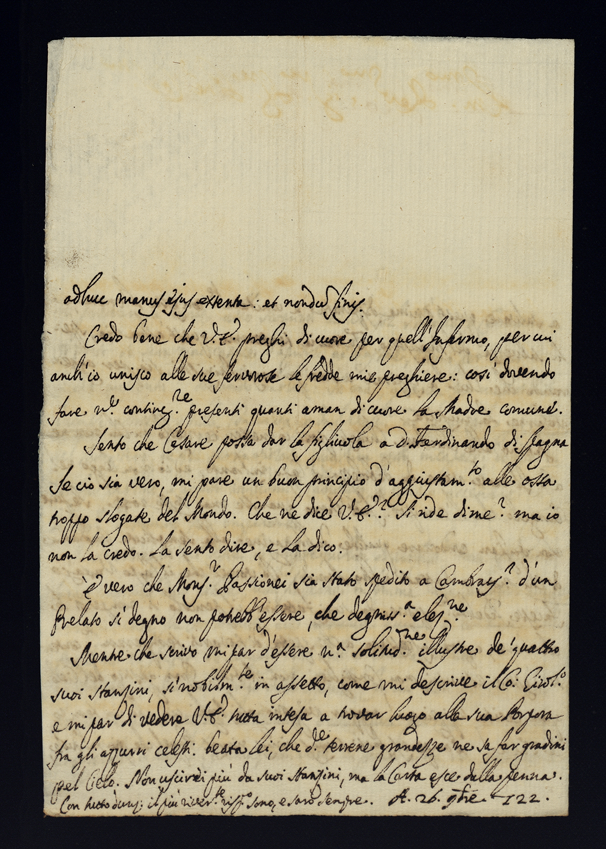 adhuc manus ejus extenta: et nondũ finis.
Credo bene che V.E. preghi di cuore per quell'Infermo, per cui
anch'io unisco alle sue fervorose le fredde mie preghiere: così dovendo
fare presenti quanti aman di cuore la Madre comune.
Sento che Cesare possa dar la figliuola a D. Ferdinando di Spagna
Se ciò sia vero, mi pare un buon principio d'aggiustam.to alle ossa
troppo slogate del Mondo. Che ne dice V.E.? Si ride di me? ma io
non la credo. La sento dire, e la dico.
È vero che Mons.r Passionei sia stato spedito a Cambrais? d'un
Prelato sì degno non potrebb'essere, che degniss.a elez.ne
Mentre che scrivo mi par d'essere nella solitud.ne illustre de' quattro
suoi stanzini, sì nobilm.te in assetto, come mi descrive il Co: Girol.o
e mi par di vedere V.E. tutta intesa a trovar luogo alla sua Porpora
fra gli azzurri celesti. beata lei, che d.e terrene grandezze ne sa far gradini
pel Cielo. Non uscirei più da suoi stanzini, ma la Carta esce dalla penna.
Con tutto il più river.te risp.o sono, e sarò sempre. A. 26. 9bre 1722.